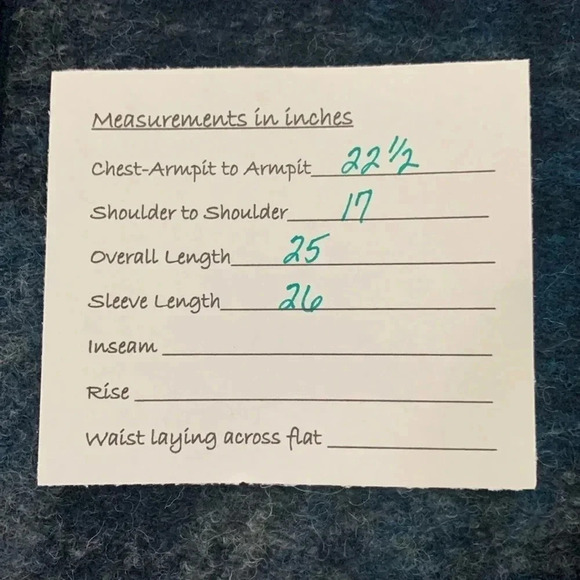 Measurements in inches
Chest-Armpit to Armpit 22 1/2
Shoulder to Shoulder 17
Overall Length 25
Sleeve Length 26
Inseam
Rise
Waist laying across flat